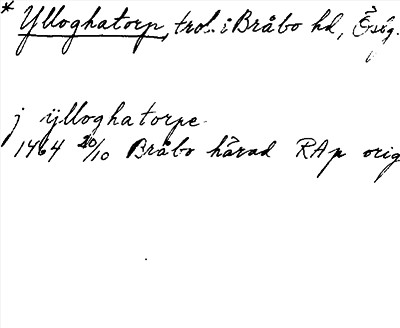 * Ylloghatorp, trol. i Bråbo hd, Ög.
j ÿlloghatorpe
1464 20/10 Bråbo härad RAp orig